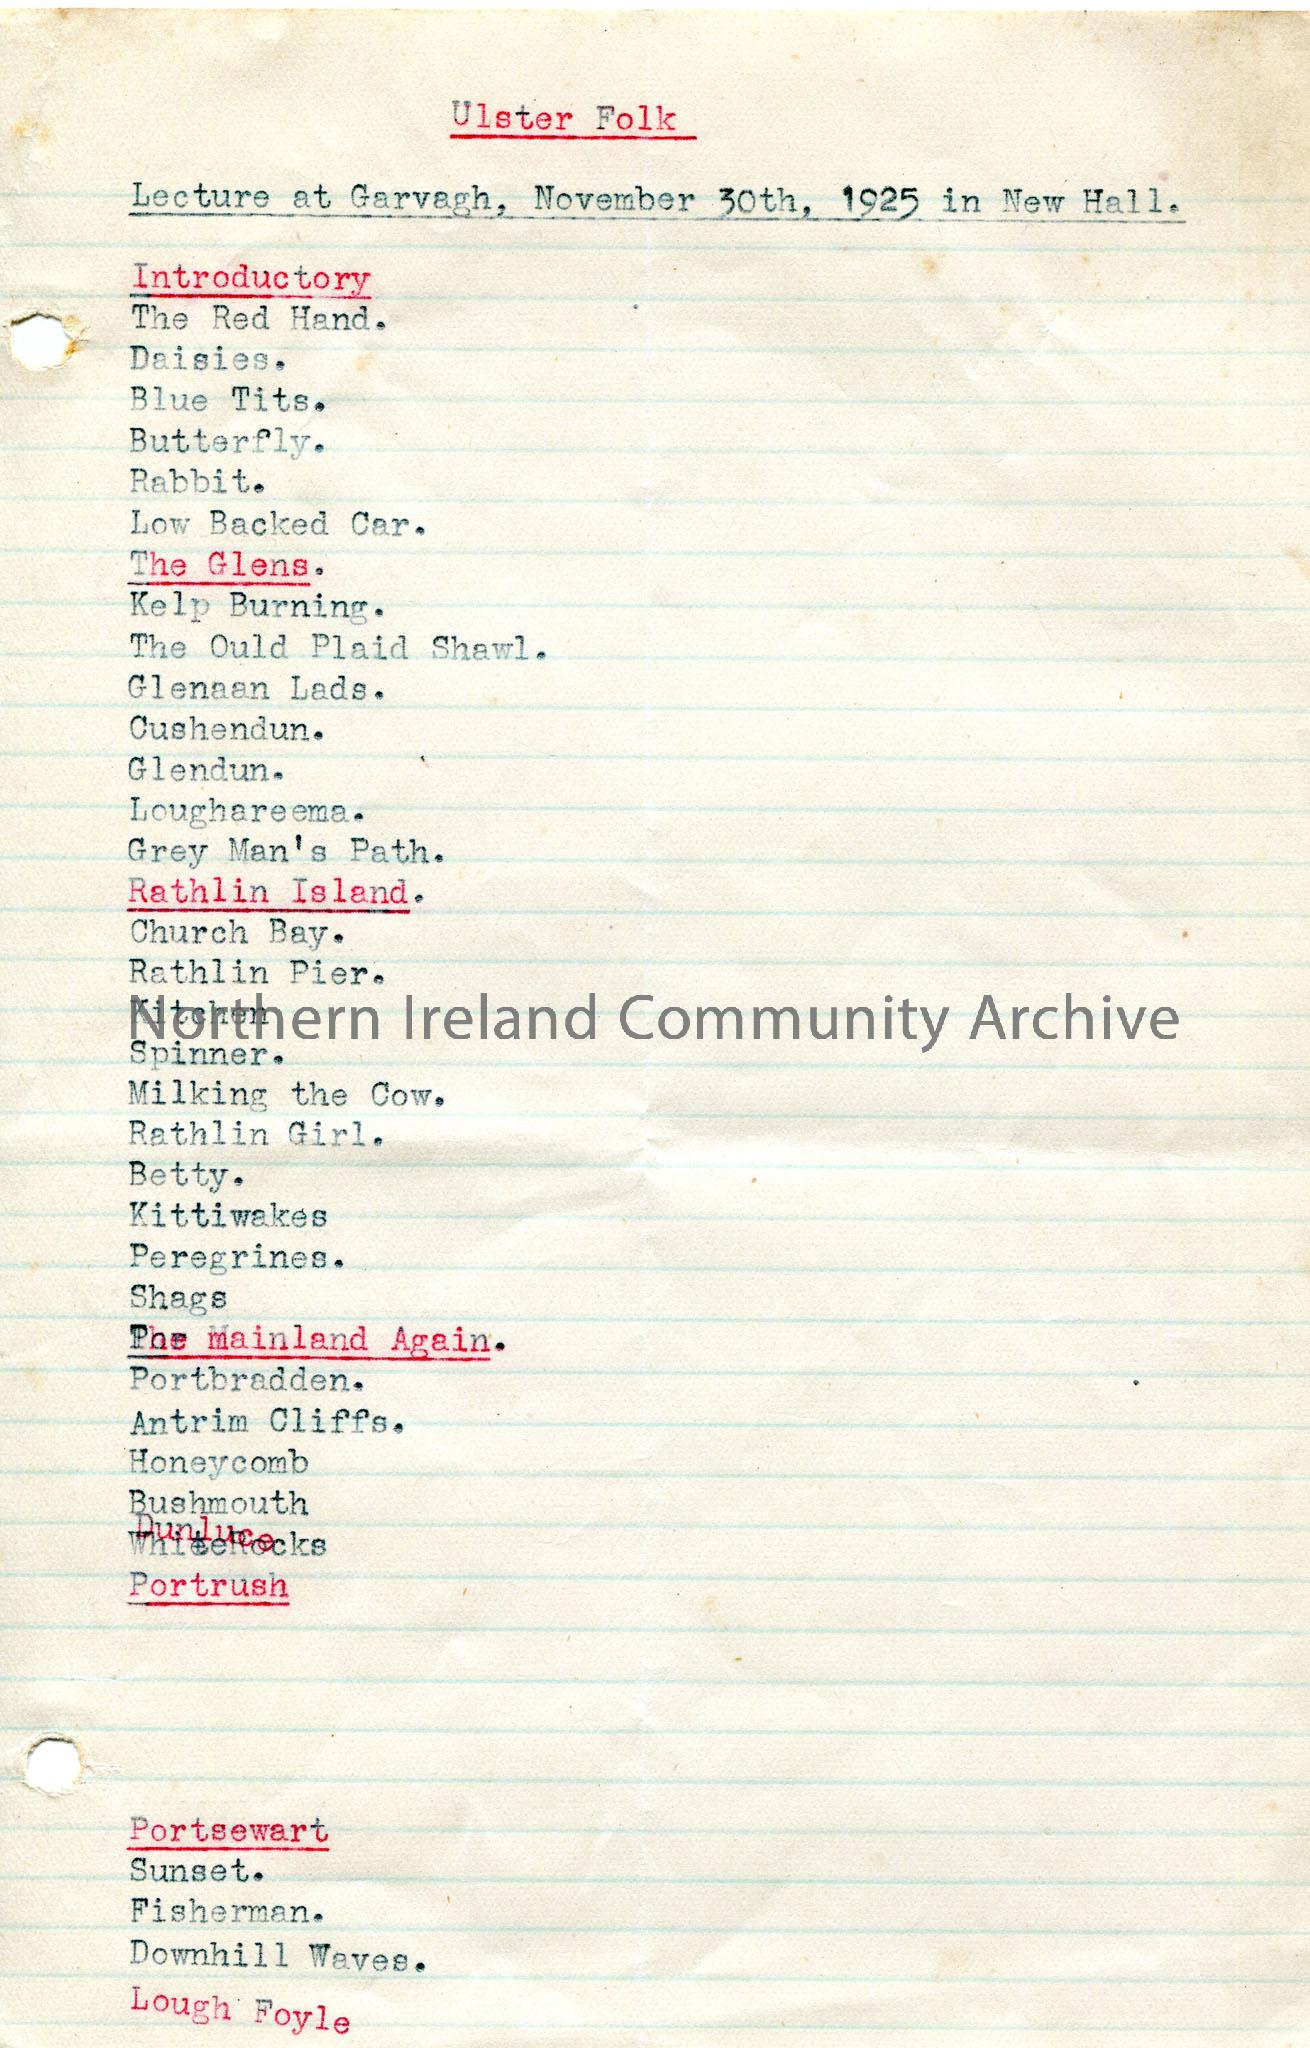 Ulster Folk
Lecture at Garvagh, November 30th, 1925 in New Hall.
Introductory
The Red Hand.
Daisies.
Blue Tits.
Butterfly.
Rabbit.
Low Backed Car.
The Glens.
Kelp Burning.
The Ould Plaid Shawl.
Glenaan Lads.
Cushendun.
Glendun.
Loughareema.
Grey Man's Path.
Rathlin Island.
Church Bay.
Rathlin Pier.
Kitchen
Northern Ireland Community Archive
Spinner.
Milking the Cow.
Rathlin Girl.
Betty.
Kittiwakes
Peregrines.
Shags
The Mainland Again.
Portbradden.
Antrim Cliffs.
Honeycomb
Bushmouth
Dunluce
WhiteRocks
Portrush
Portsewart
Sunset.
Fisherman.
Downhill Waves.
Lough Foyle